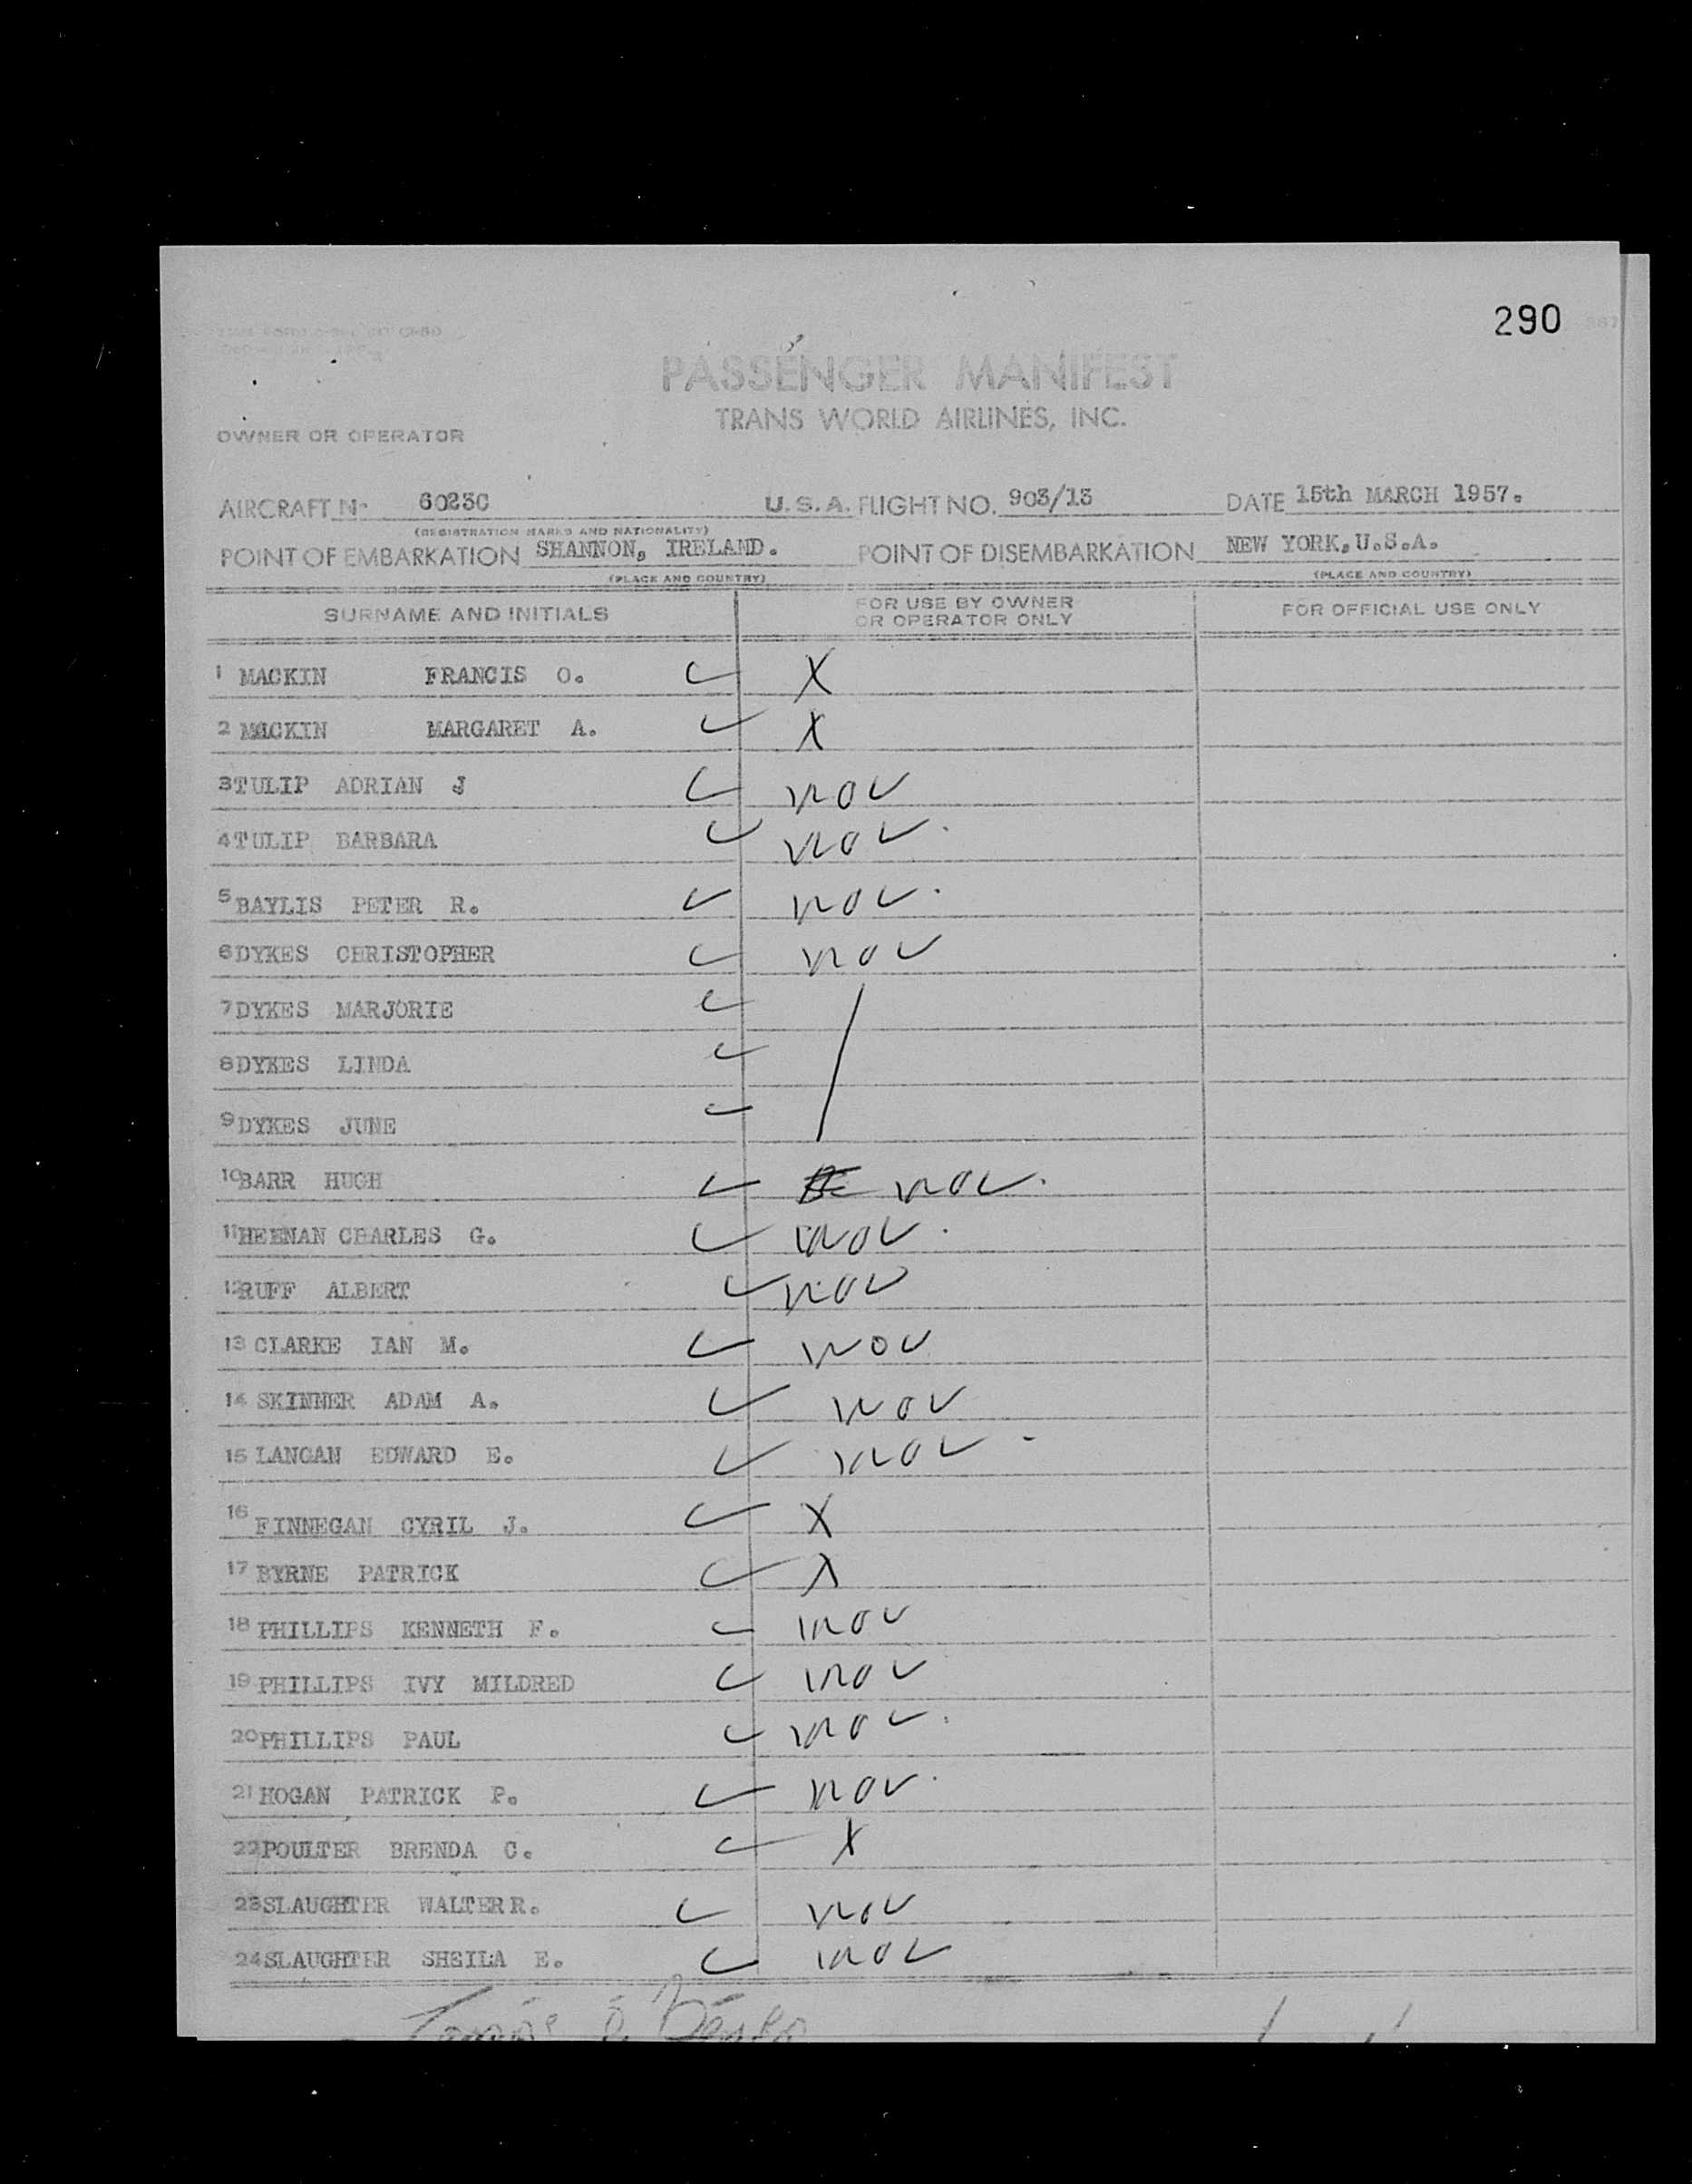 290
PASSENGER MANIFEST
TRANS WORLD AIRLINES, INC.
OWNER OR OPERATOR
AIRCRAFT No 6023C U.S.A. FLIGHT NO. 903/13 DATE 15th MARCH 1957.
(REGISTRATION MARKS AND NATIONALITY)
POINT OF EMBARKATION SHANNON, IRELAND. POINT OF DISEMBARKATION NEW YORK,U.S.A.
(PLACE AND COUNTRY) (PLACE AND COUNTRY)
SURNAME AND INITIALS FOR USE BY OWNER OR OPERATOR ONLY FOR OFFICIAL USE ONLY
1 MACKIN FRANCIS O. X
2 MACKIN MARGARET A. X
3 TULIP ADRIAN J nov
4 TULIP BARBARA nov.
5 BAYLIS PETER R. nov.
6 DYKES CHRISTOPHER nov
7 DYKES MARJORIE
8 DYKES LINDA
9 DYKES JUNE
10 BARR HUGH nov.
11 HEENAN CHARLES G. nov.
12 RUFF ALBERT nov
13 CLARKE IAN M. nov
14 SKINNER ADAM A. nov
15 LANGAN EDWARD E. nov.
16 FINNEGAN CYRIL J. X
17 BYRNE PATRICK X
18 PHILLIPS KENNETH F. nov
19 PHILLIPS IVY MILDRED nov
20 PHILLIPS PAUL nov.
21 HOGAN PATRICK P. nov.
22 POULTER BRENDA C. X
23 SLAUGHTER WALTER R. nov
24 SLAUGHTER SHEILA E. nov